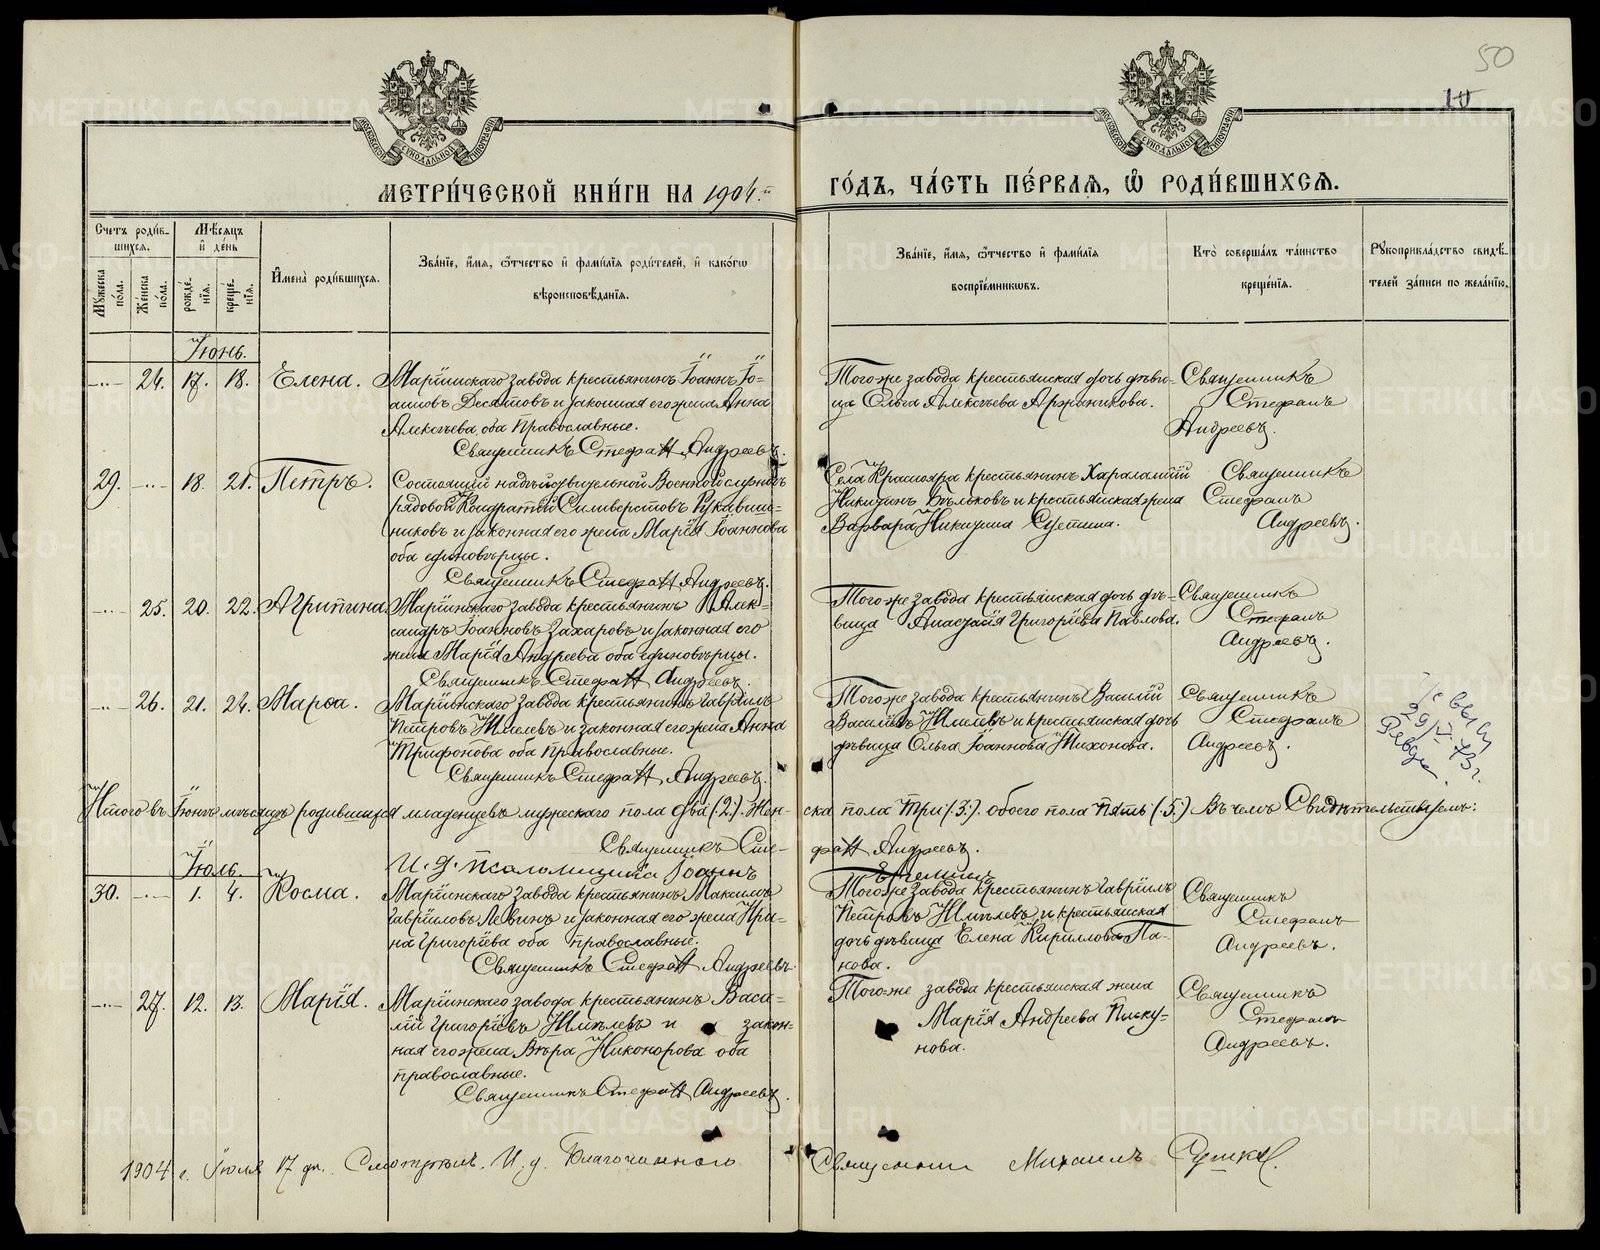 50
10
МОСКОВСКОЙ СѴНОДАЛЬНОЙ ТИПОГРАФІИ
МОСКОВСКОЙ СѴНОДАЛЬНОЙ ТИПОГРАФІИ
МЕТРИ́ЧЕСКОЙ КНИ́ГИ НА 1904.й ГО́ДЪ, ЧА́СТЬ ПЕ́РВАЯ, Ѽ РОДИ́ВШИХСЯ.
Счетъ роди́вшихся.
Мѣсяцъ и҆ де́нь
Мꙋжеска по́ла.
Же́нска по́ла.
рожде́нїѧ.
креще́нїѧ.
И҆мена̀ роди́вшихся.
Зва́нїе, и҆́мя, ѻ҆́тчество и҆ фами́лїя роди́телей, и҆ како́гѡ
вѣроисповѣ́данїя.
Зва́нїе, и҆́мя, ѻ҆́тчество и҆ фами́лїя
воспрїе́мникѡвъ.
Кто̀ соверша́лъ та́инство
креще́нїя.
Рꙋкоприкла́дство свидѣ́телей за́писи по жела́нїю.
Іюнь.
—..— 24. 17. 18. Елена. Маріинскаго завода крестьянинъ Іоаннъ Іо-
анновъ Десятовъ и законная его жена Анна
Алексѣева, оба Православные.
Священникъ Стефанъ Андреевъ.
Того же завода крестьянская дочь дѣви-
ца Ольга Алексѣева Аржанникова.
Священникъ
Стефанъ
Андреевъ.
29. —..— 18. 21. Петръ. Состоящій на дѣйствительной Военной службѣ
рядовой Кондратій Силиверстовъ Рукавиш-
никовъ и законная его жена Марія Іоаннова
оба единовѣрцы.
Священникъ Стефанъ Андреевъ.
Села Краснояра крестьянинъ Харалампій
Никитинъ Бѣльковъ и крестьянская жена
Варвара Никитина
Священникъ
Стефанъ
Андреевъ.
—..— 25. 20. 22. Агрипина. Маріинскаго завода крестьянинъ Алек-
сандръ Іоанновъ Захаровъ и законная его
жена Марія Андреева оба единовѣрцы.
Священникъ Стефанъ Андреевъ.
Того же завода крестьянская дочь дѣ-
вица Анастасія Григоріева Павлова.
Священникъ
Стефанъ
Андреевъ.
—..— 26. 21. 24. Марѳа. Маріинскаго завода крестьянинъ Гавріилъ
Петровъ Жмылевъ и законная его жена Анна
Трифонова оба Православные.
Священникъ Стефанъ Андреевъ.
Того же завода крестьянинъ Василій
Васильевъ Жмылевъ и крестьянская дочь
дѣвица Ольга Іоаннова Тихонова.
Священникъ
Стефанъ
Андреевъ.
29/V-73г.
Ревда.
Итого въ Іюнѣ мѣсяцѣ родившихся младенцевъ мужескаго пола два (2.) Жен-
ска пола три (3.). обоего пола пять (5.) Въ чемъ Свидѣтельствуемъ:
Священникъ Сте-
фанъ Андреевъ.
И. д. псаломщика Іоаннъ
Іюль.
30. —..— 1. 4. Косма. Маріинскаго завода крестьянинъ Максимъ
Гавріиловъ Левинъ и законная его жена Ири-
на Григоріева оба православные.
Священникъ Стефанъ Андреевъ.
Того же завода крестьянинъ Гавріилъ
Петровъ Жмылевъ и крестьянская
дочь дѣвица Елена Кириллова Па-
нова.
Священникъ
Стефанъ
Андреевъ.
—..— 27. 12. 13. Марія. Маріинскаго завода крестьянинъ Васи-
лій Григоріевъ Жмылевъ и закон-
ная его жена Вѣра Никонорова оба
православные.
Священникъ Стефанъ Андреевъ.
Того же завода крестьянская жена
Марія Андреева Писку-
нова.
Священникъ
Стефанъ
Андреевъ.
1904 г. Іюля 17 дн. Смотрѣлъ. И. д. Благочиннаго Священникъ Михаилъ
METRIKI.GASO-URAL.RU